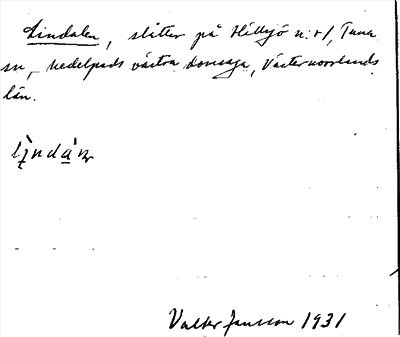 Lindalen, slåtter på Hillsjö n:r 1, Tuna
sn, Medelpads västra domsaga, Västernorrlands
län.
Valter Jansson 1931